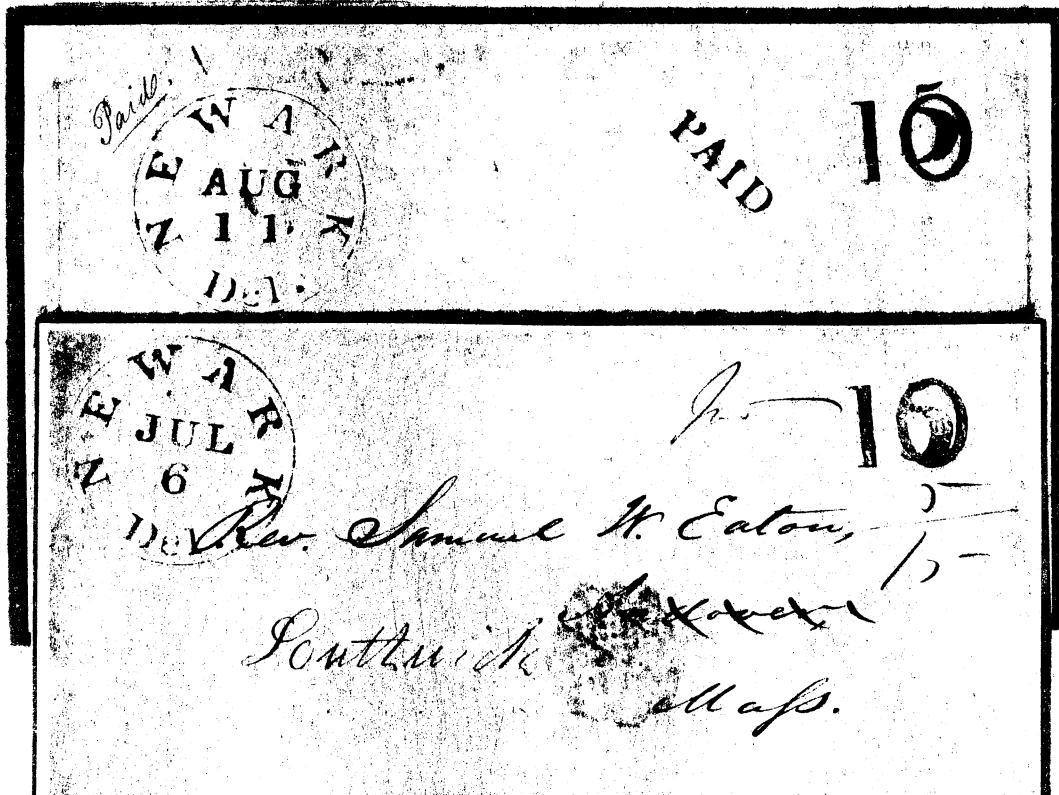 Paid.
NEWARK
AUG
11
Del.
PAID
10
NEWARK
JUL
6
Del.
10
Rev. Samuel W. Eaton,
5
15
Andover
Southwick
Mass.